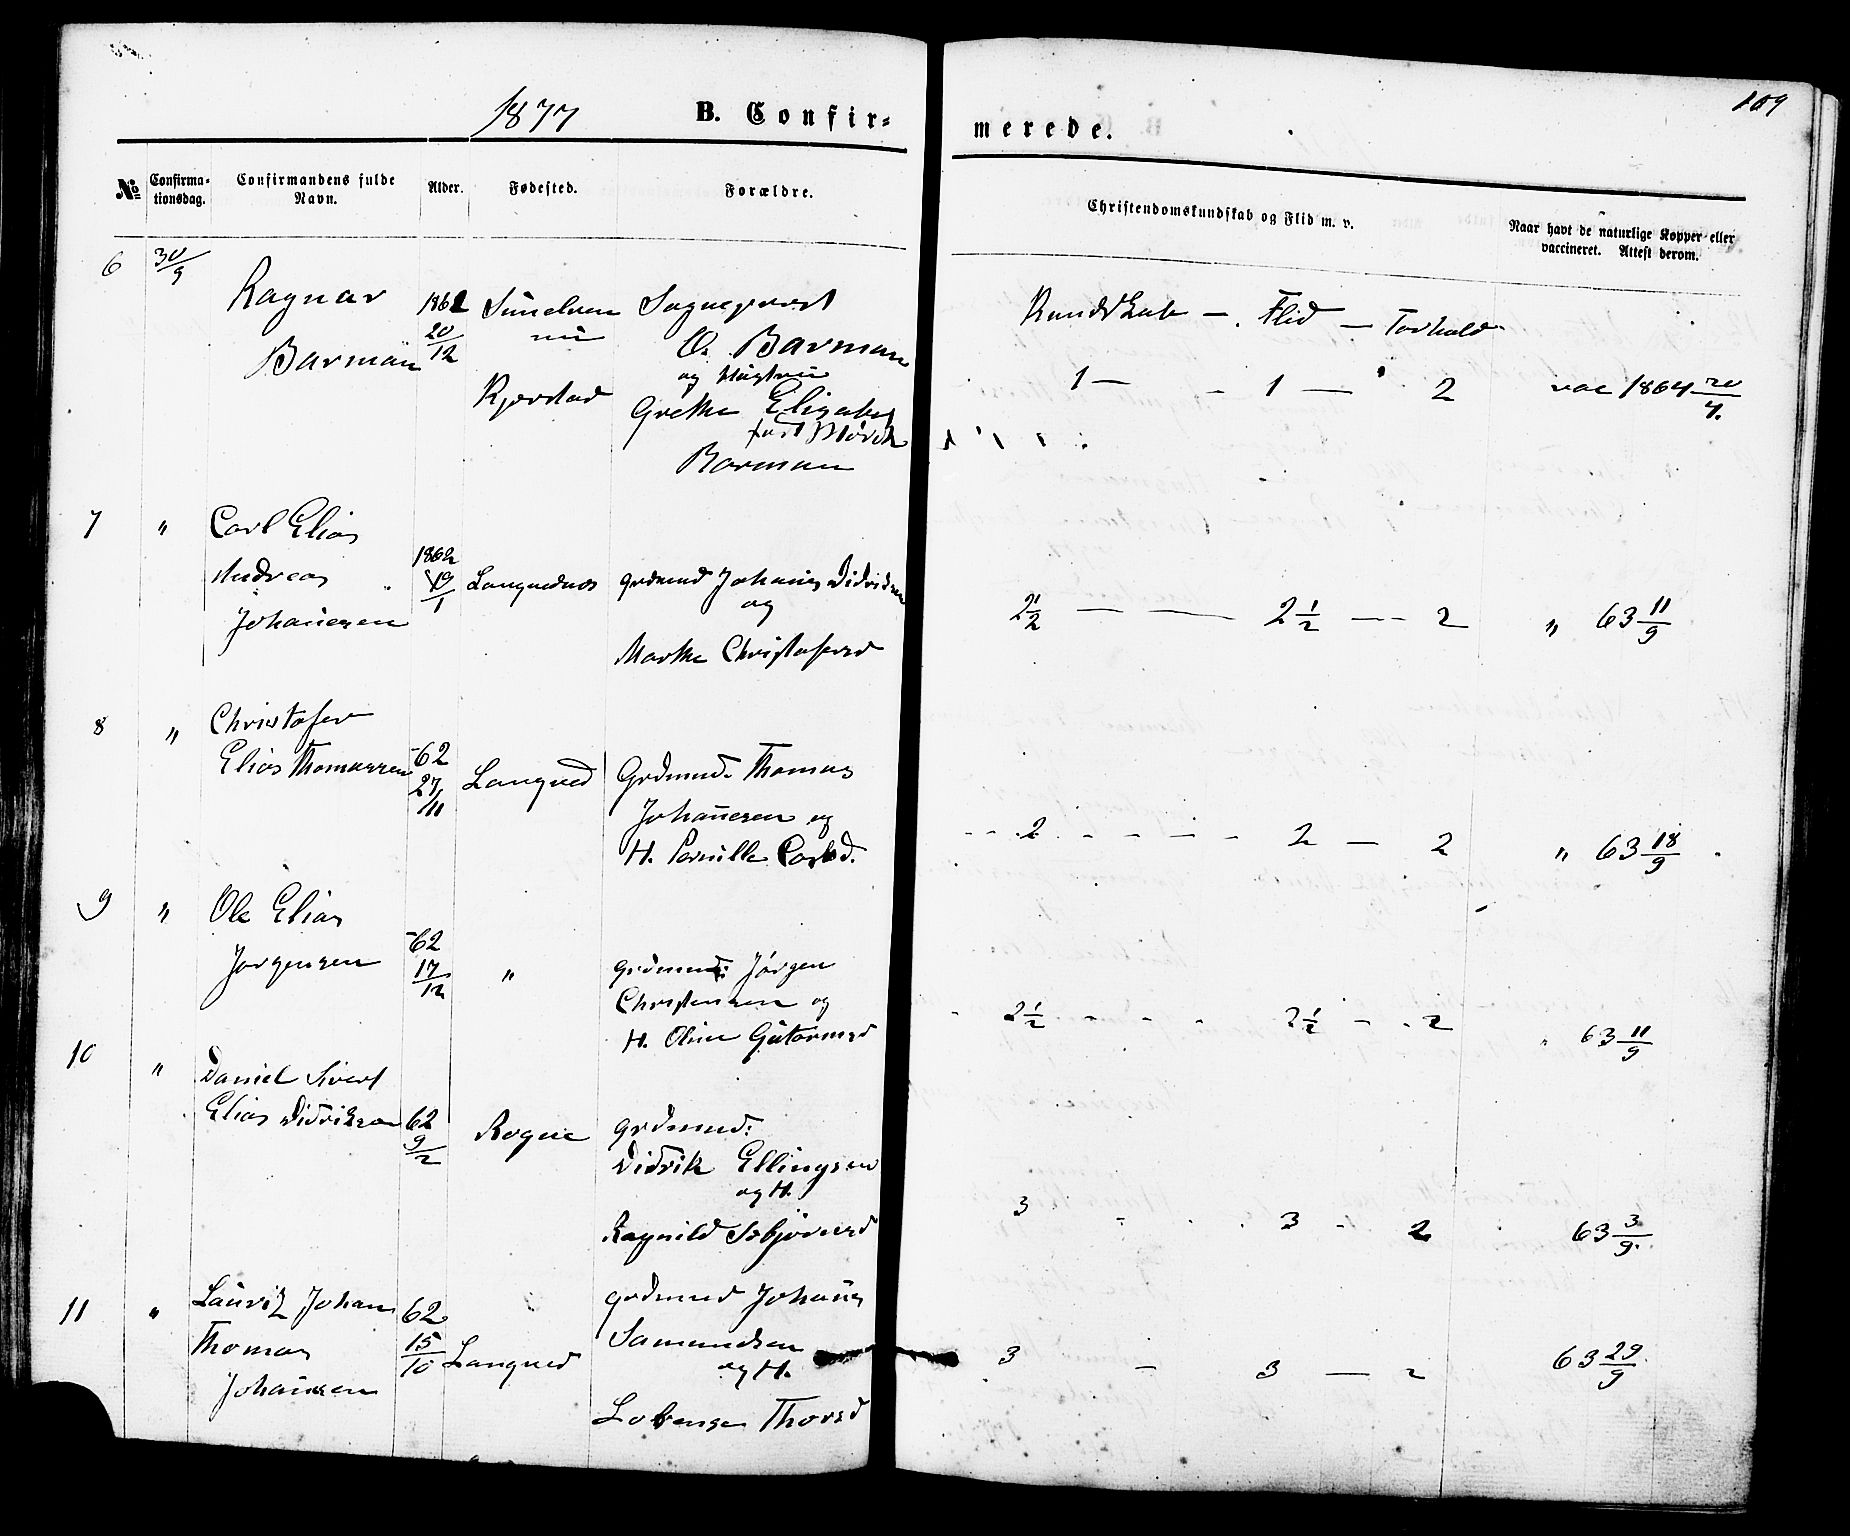 1877
B. Confir-
merede.
109
No
Confirma-
tionsdag.
Confirmandens fulde
Navn.
Alder.
Fødested.
Forældre.
Christendomskundskab og Flid m. v.
Naar havt de naturlige Kopper eller
vaccineret. Attest derom.
6 30/9
Ragnar
Barman
1862
20/12
Kjerstad
Sognepræst
O. Barman
og Hustru
Grethe Elisabet
født Mørch
Barman
Kundskab - Flid - Forhold
1 - - 1 - 2 vac 1864 20/4.
7 " Carl Elias
Andreas
Johanesen
1862
19/1
Langvednæs
grdmnd Johanes Didriksen
og
Marthe Christofersd
2½ - - 2½ - - 2 " 63 11/9
8 " Christofer
Elias Thomassen
-62
27/11
Langved
Grdmnd. Thomas
Johannesen og
H. Pernille Carlsd.
2 - - - - 2 - 2 " 63 18/9
9 " Ole Elias
Jørgensen
-62
17/12
"
grdmnd: Jørgen
Christensen og
H. Oline Gutormsd
2½ - - - 2½ - - 2 " 63 11/9
10 " Daniel Sivert
Elias Didriksen
62
9/2
Rogne
grdmnd:
Didrik Ellingsen
og H.
Ragnild Asbjørnsd
3 - 3 - 2 63 3/9.
11 " Lauritz Johan
Thomas
Johansen
62
15/10
Langved
grdmnd Johanes
Samundsen
og H.
Lorense Thorsd
3 - 3 - 2 63 29/9